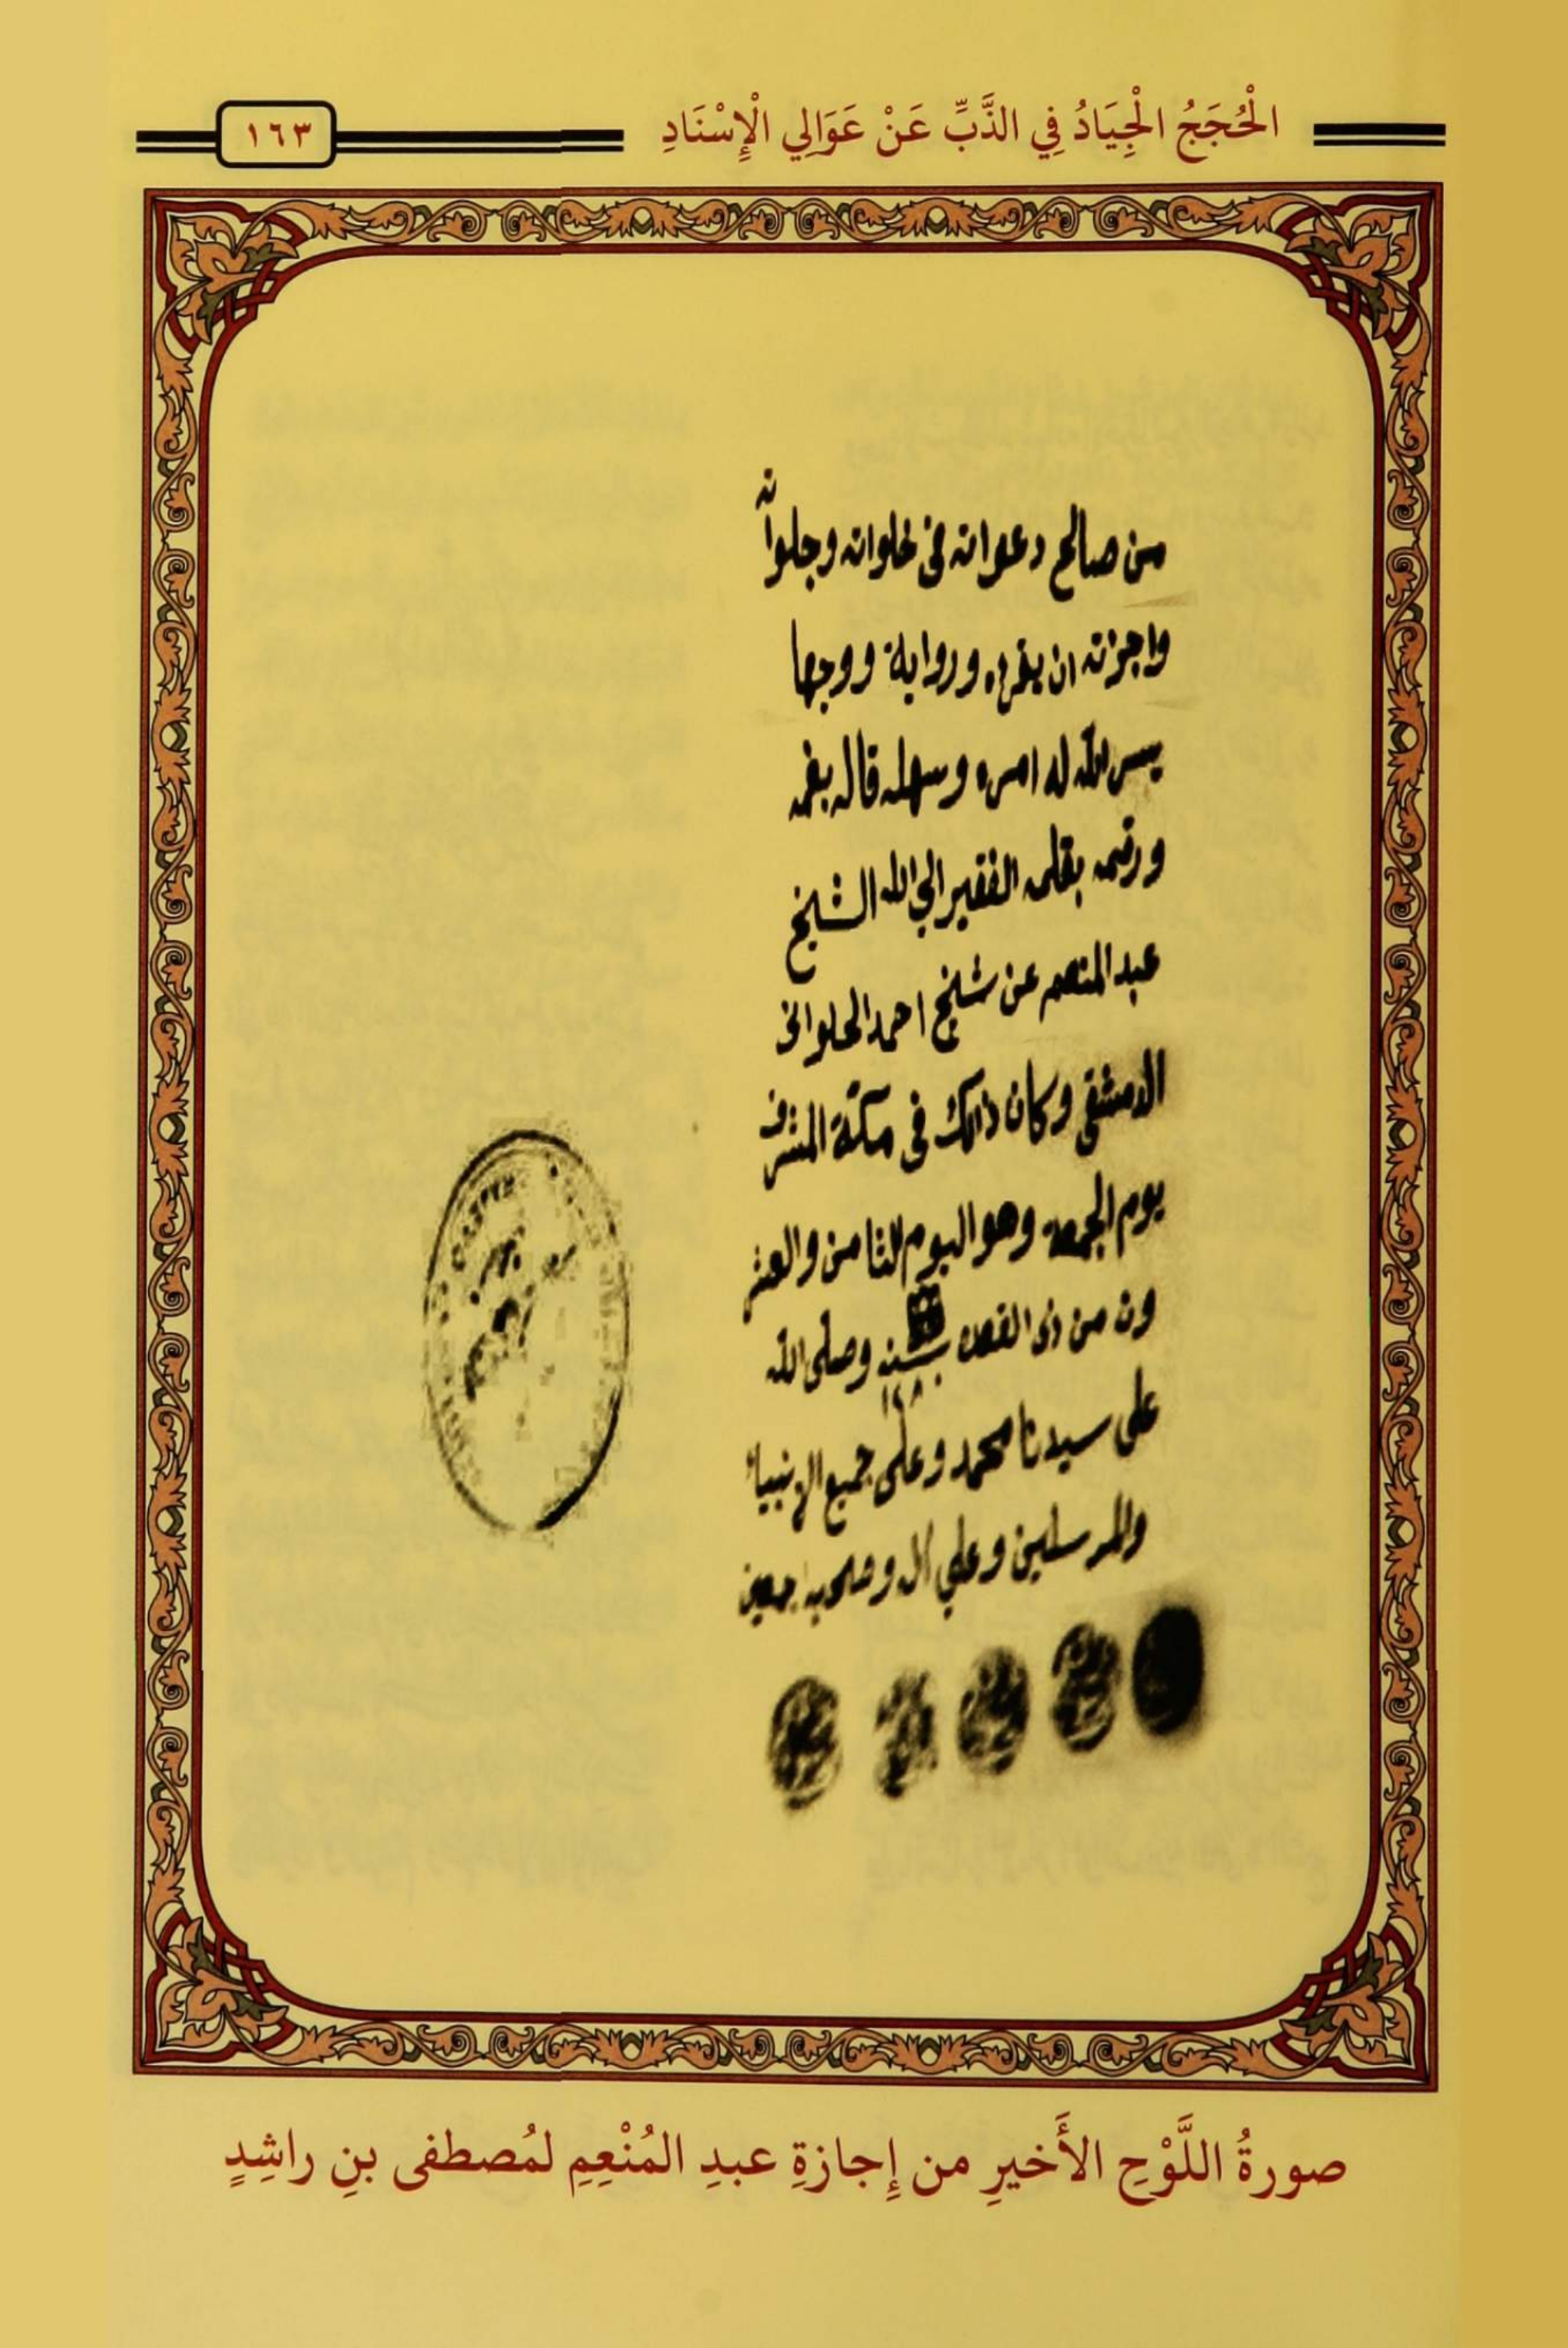 الْحُجَجُ الْجِيَادُ فِي الذَّبِّ عَنْ عَوَالِي الْإِسْنَادِ
١٦٣
من صالح دعواته فى خلواته وجلواته
واجزته ان يقرء ورواية ووجها
يسر الله له امره وسهله قاله بفمه
ورقمه بقلمه الفقير الي الله الشيخ
عبد المنعم عن شيخ احمد الحلوانى
الدمشقى وكان ذالك فى مكة المشرف
يوم الجمعة وهو اليوم الثامن والعشر
ون من ذى القعده سنة وصلى الله
على سيدنا محمد وعلى جميع الانبياء
والمرسلين وعلي ال وصحبه اجمعين
صورةُ اللَّوْحِ الأَخيرِ من إِجازةِ عبدِ المُنْعِمِ لمُصطفى بنِ راشِدٍ